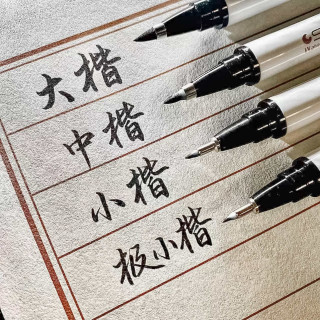 大楷
中楷
小楷
极小楷